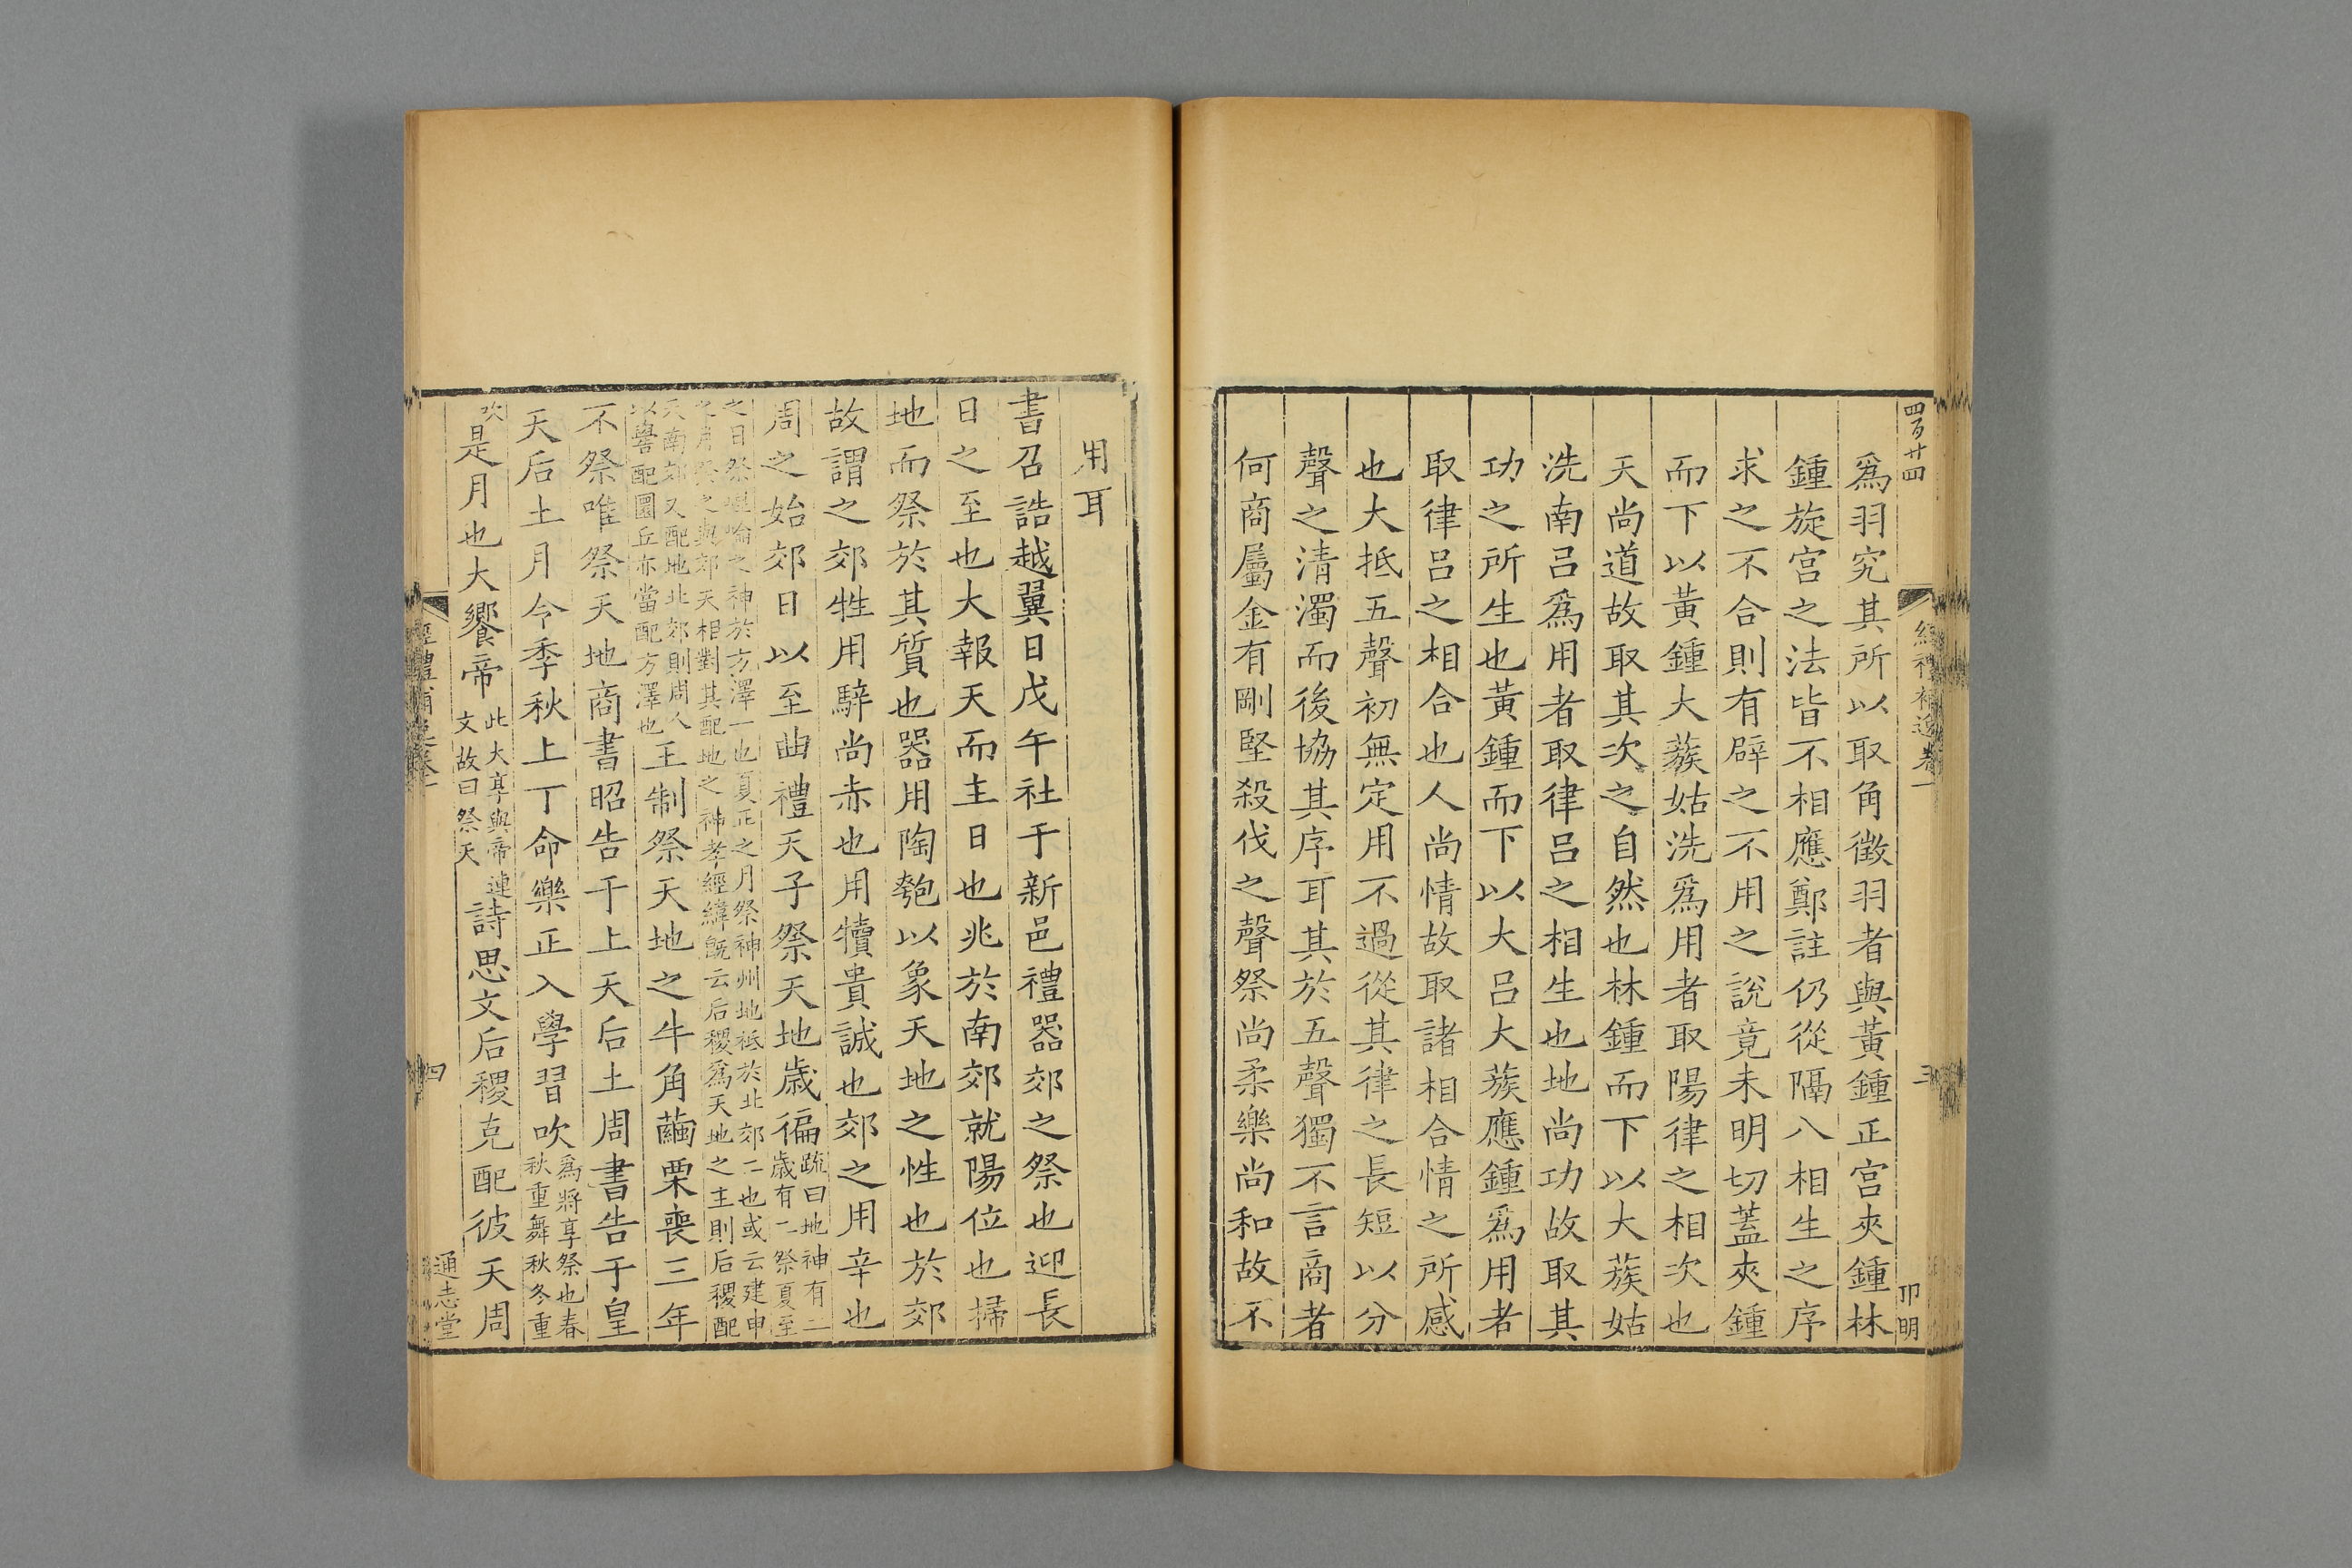 四百廿四
經禮補逸卷一
三
卬明
爲羽究其所以取角徵羽者與黃鍾正宫夾鍾林
鍾旋宫之法皆不相應鄭註仍從隔八相生之序
求之不合則有辟之不用之說竟未明切蓋夾鍾
而下以黃鍾大蔟姑洗爲用者取陽律之相次也
天尚道故取其次之自然也林鍾而下以大蔟姑
洗南吕爲用者取律吕之相生也地尚功故取其
功之所生也黃鍾而下以大吕大蔟應鍾爲用者
取律吕之相合也人尚情故取諸相合情之所感
也大抵五聲初無定用不過從其律之長短以分
聲之清濁而後協其序耳其於五聲獨不言商者
何商屬金有剛堅殺伐之聲祭尚柔樂尚和故不
用耳
書召誥越翼日戊午社于新邑禮器郊之祭也迎長
日之至也大報天而主日也兆於南郊就陽位也掃
地而祭於其質也器用陶匏以象天地之性也於郊
故謂之郊牲用騂尚赤也用犢貴誠也郊之用辛也
周之始郊日以至曲禮天子祭天地歲徧疏曰地神有二
歲有二祭夏至
之日祭崐崘之神於方澤一也夏正之月祭神州地祗於北郊二也或云建申
之月祭之與郊天相對其配地之神孝經緯旣云后稷爲天地之主則后稷配
天南郊又配地北郊則周人
以嚳配圜丘亦當配方澤也王制祭天地之牛角繭栗喪三年
不祭唯祭天地商書昭告于上天后土周書告于皇
天后土月令季秋上丁命樂正入學習吹爲將享祭也春
秋重舞秋冬重
吹是月也大饗帝此大享與帝連
文故曰祭天詩思文后稷克配彼天周
經禮補逸卷一
四
通志堂